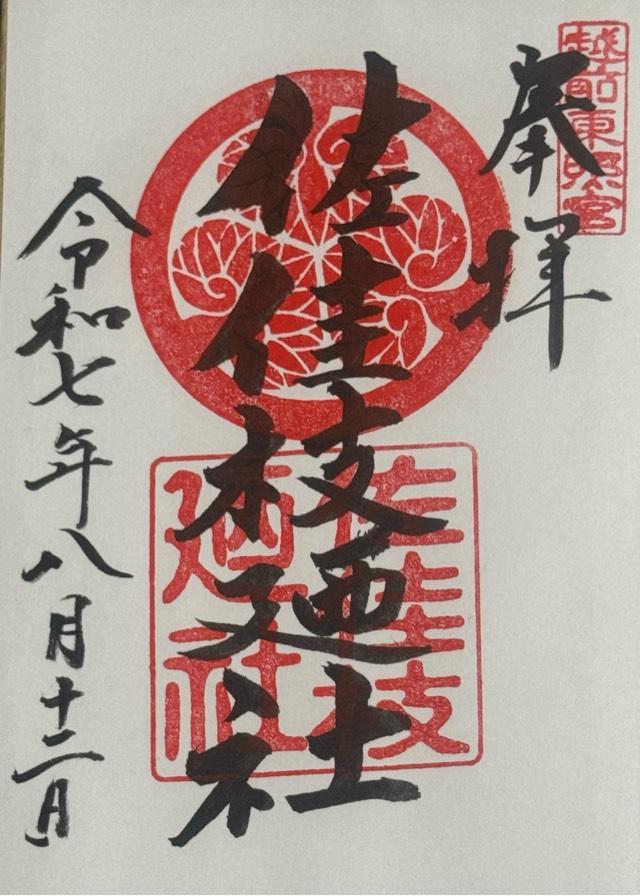 越前東照宮
奉拝
佐佳枝廼社
佐佳枝
廼社
令和七年八月十二日